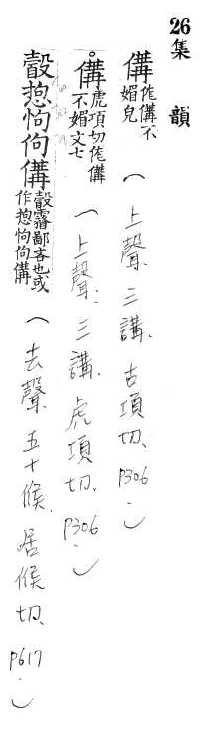 26
集韻
傋㐸傋不媚皃(上聲.三講.古項切.P306.)
傋虎項切㐸傋不媚文七(上聲.三講.虎項切.P306.)
㝅㤧怐佝傋㝅霿鄙吝也或作㤧怐佝傋(去聲.五十候.居候切.P617.)